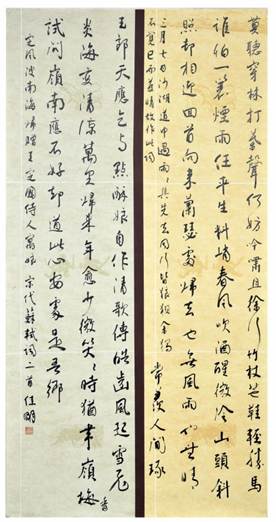 莫聽穿林打葉聲何妨吟嘯且徐行竹杖芒鞋輕勝馬
誰怕一蓑煙雨任平生料峭春風吹酒醒微冷山頭斜
照卻相迎回首向來蕭瑟處歸去也無風雨也無晴
三月七日沙湖道中遇雨雨具先去同行皆狼狽余獨
不覺已而遂晴故作此詞
常羨人間琢
玉郎天應乞與點酥娘自作清歌傳皓齒風起雪飛
炎海變清涼萬里歸來年愈少微笑笑時猶帶嶺梅香
試問嶺南應不好卻道此心安處是吾鄉
定風波南海歸贈王定國侍人寓娘 宋代蘇軾詞二首 任明